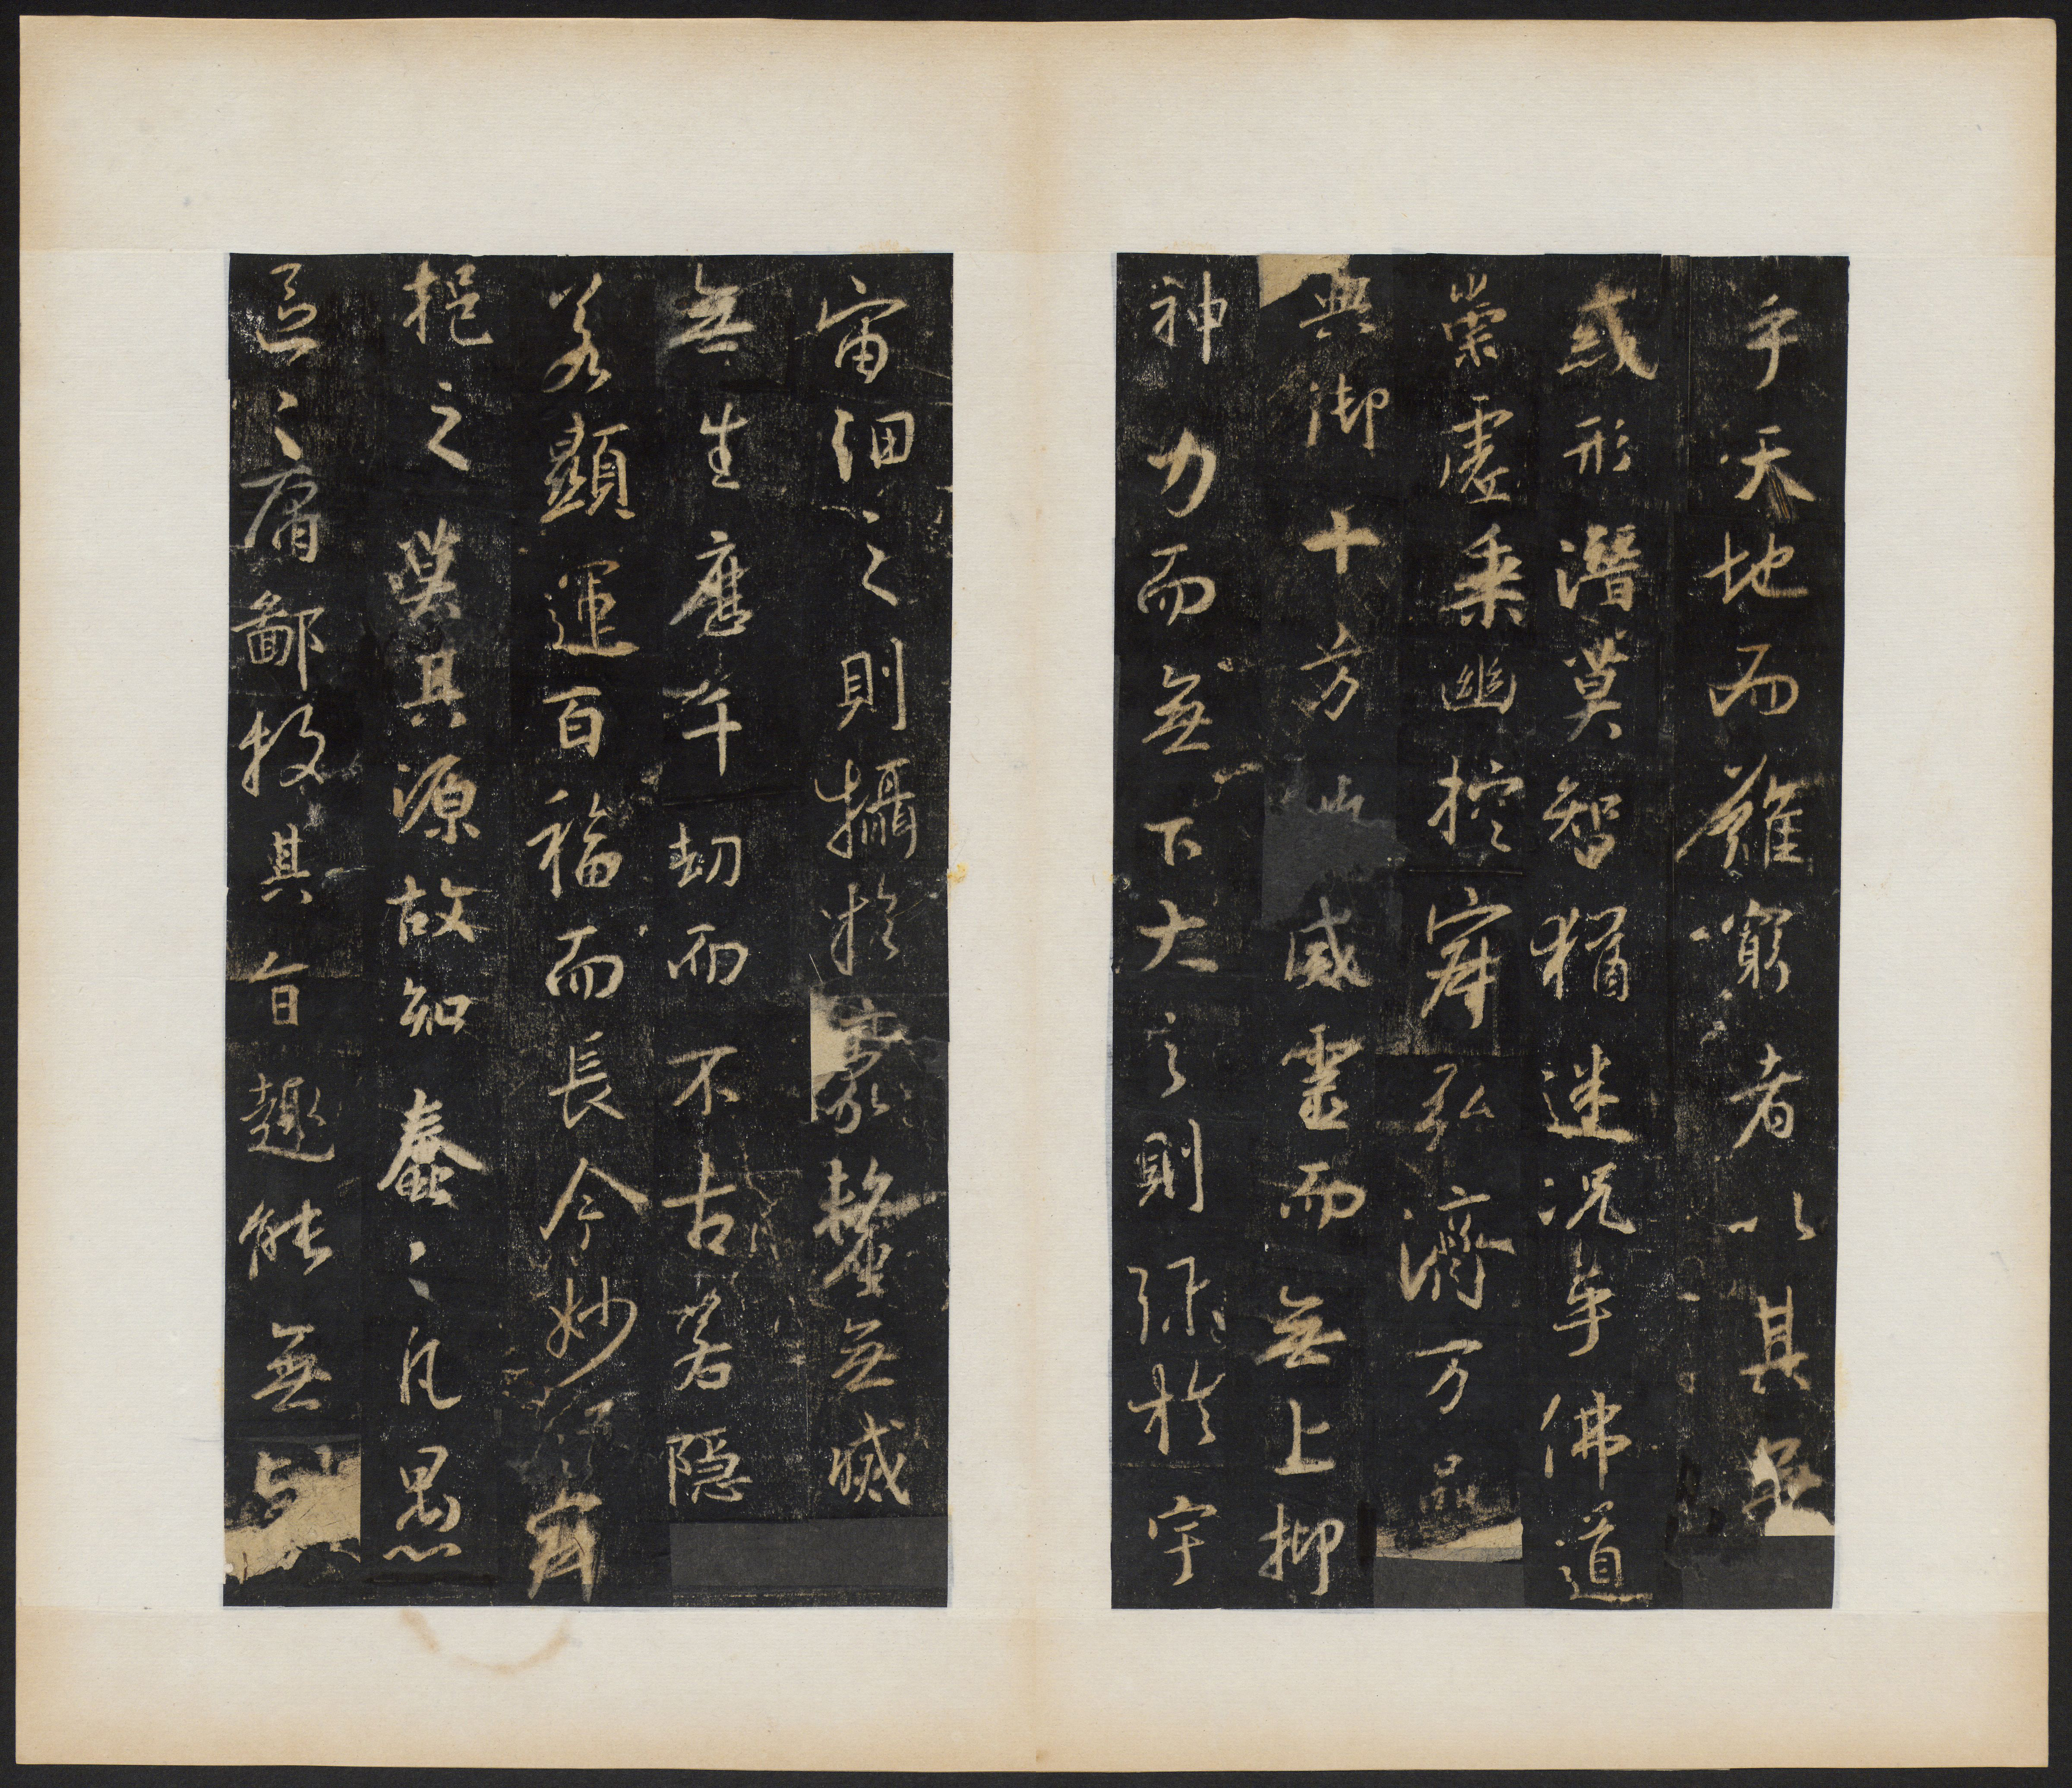 乎天地而難窮者以其無
或形潛莫智猶迷况乎佛道
崇虛乘幽控寂弘濟万品
典御十方 威靈而無上抑
神力而無下大之則弥於宇
宙細之則攝於豪氂無滅
無生歷千劫而不古若隱
若顯運百福而長今妙 玄
挹之莫其源故知蠢〻凡愚
區〻庸鄙投其旨趣能無